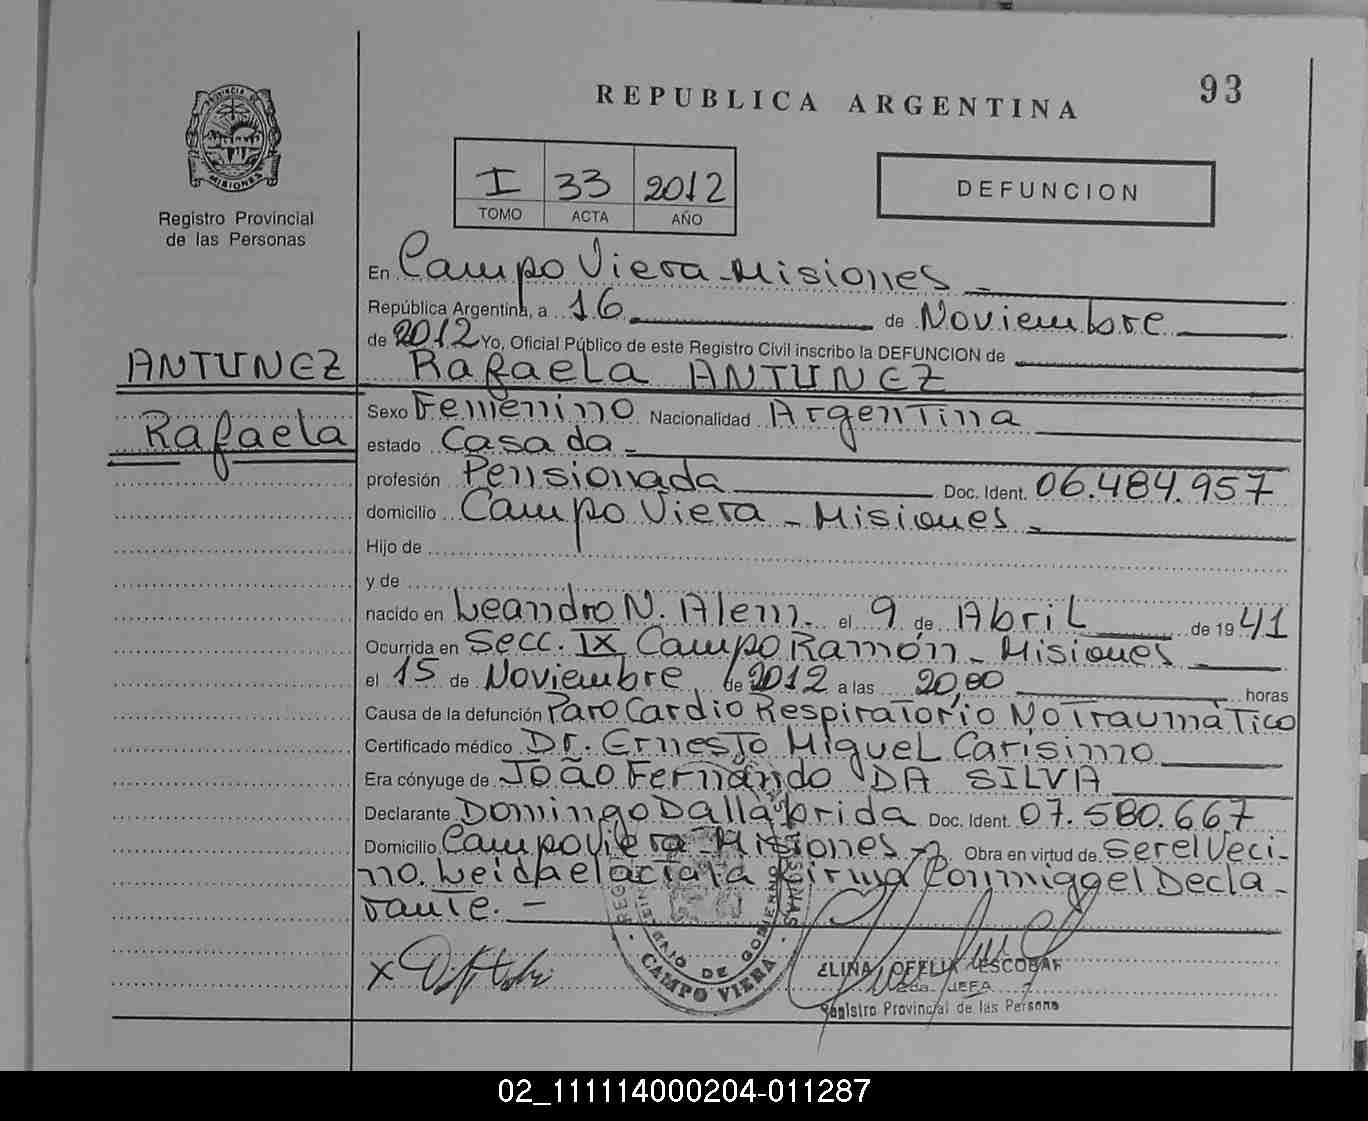 93
REPUBLICA ARGENTINA
PROVINCIA DE MISIONES
Registro Provincial
de las Personas
I 33 2012
TOMO ACTA AÑO
DEFUNCION
En Campo Viera - Misiones -
República Argentina, a 16 de Noviembre
de 2012 Yo, Oficial Público de este Registro Civil inscribo la DEFUNCION de
ANTUNEZ Rafaela ANTUNEZ
Rafaela
Sexo Femenino Nacionalidad Argentina
estado Casada -
profesión Pensionada Doc. Ident. 06.484.957
domicilio Campo Viera - Misiones -
Hijo de
y de
nacido en Leandro N. Alem. el 9 de Abril de 1941
Ocurrida en Secc. IX Campo Ramón - Misiones
el 15 de Noviembre de 2012 a las 20,00 horas
Causa de la defunción Paro Cardio Respiratorio No Traumático
Certificado médico Dr. Ernesto Miguel Carisimo
Era cónyuge de João Fernando DA SILVA
Declarante Domingo Dallabrida Doc. Ident. 07.580.667
Domicilio Campo Viera - Misiones - Obra en virtud de ser el Veci-
no. Leida el acta la firma Conmigo el Decla-
rante. -
X
CAMPO VIERA
ELINA OFELIA ESCOBAR
JEFA
Registro Provincial de las Persona
02_111114000204-011287